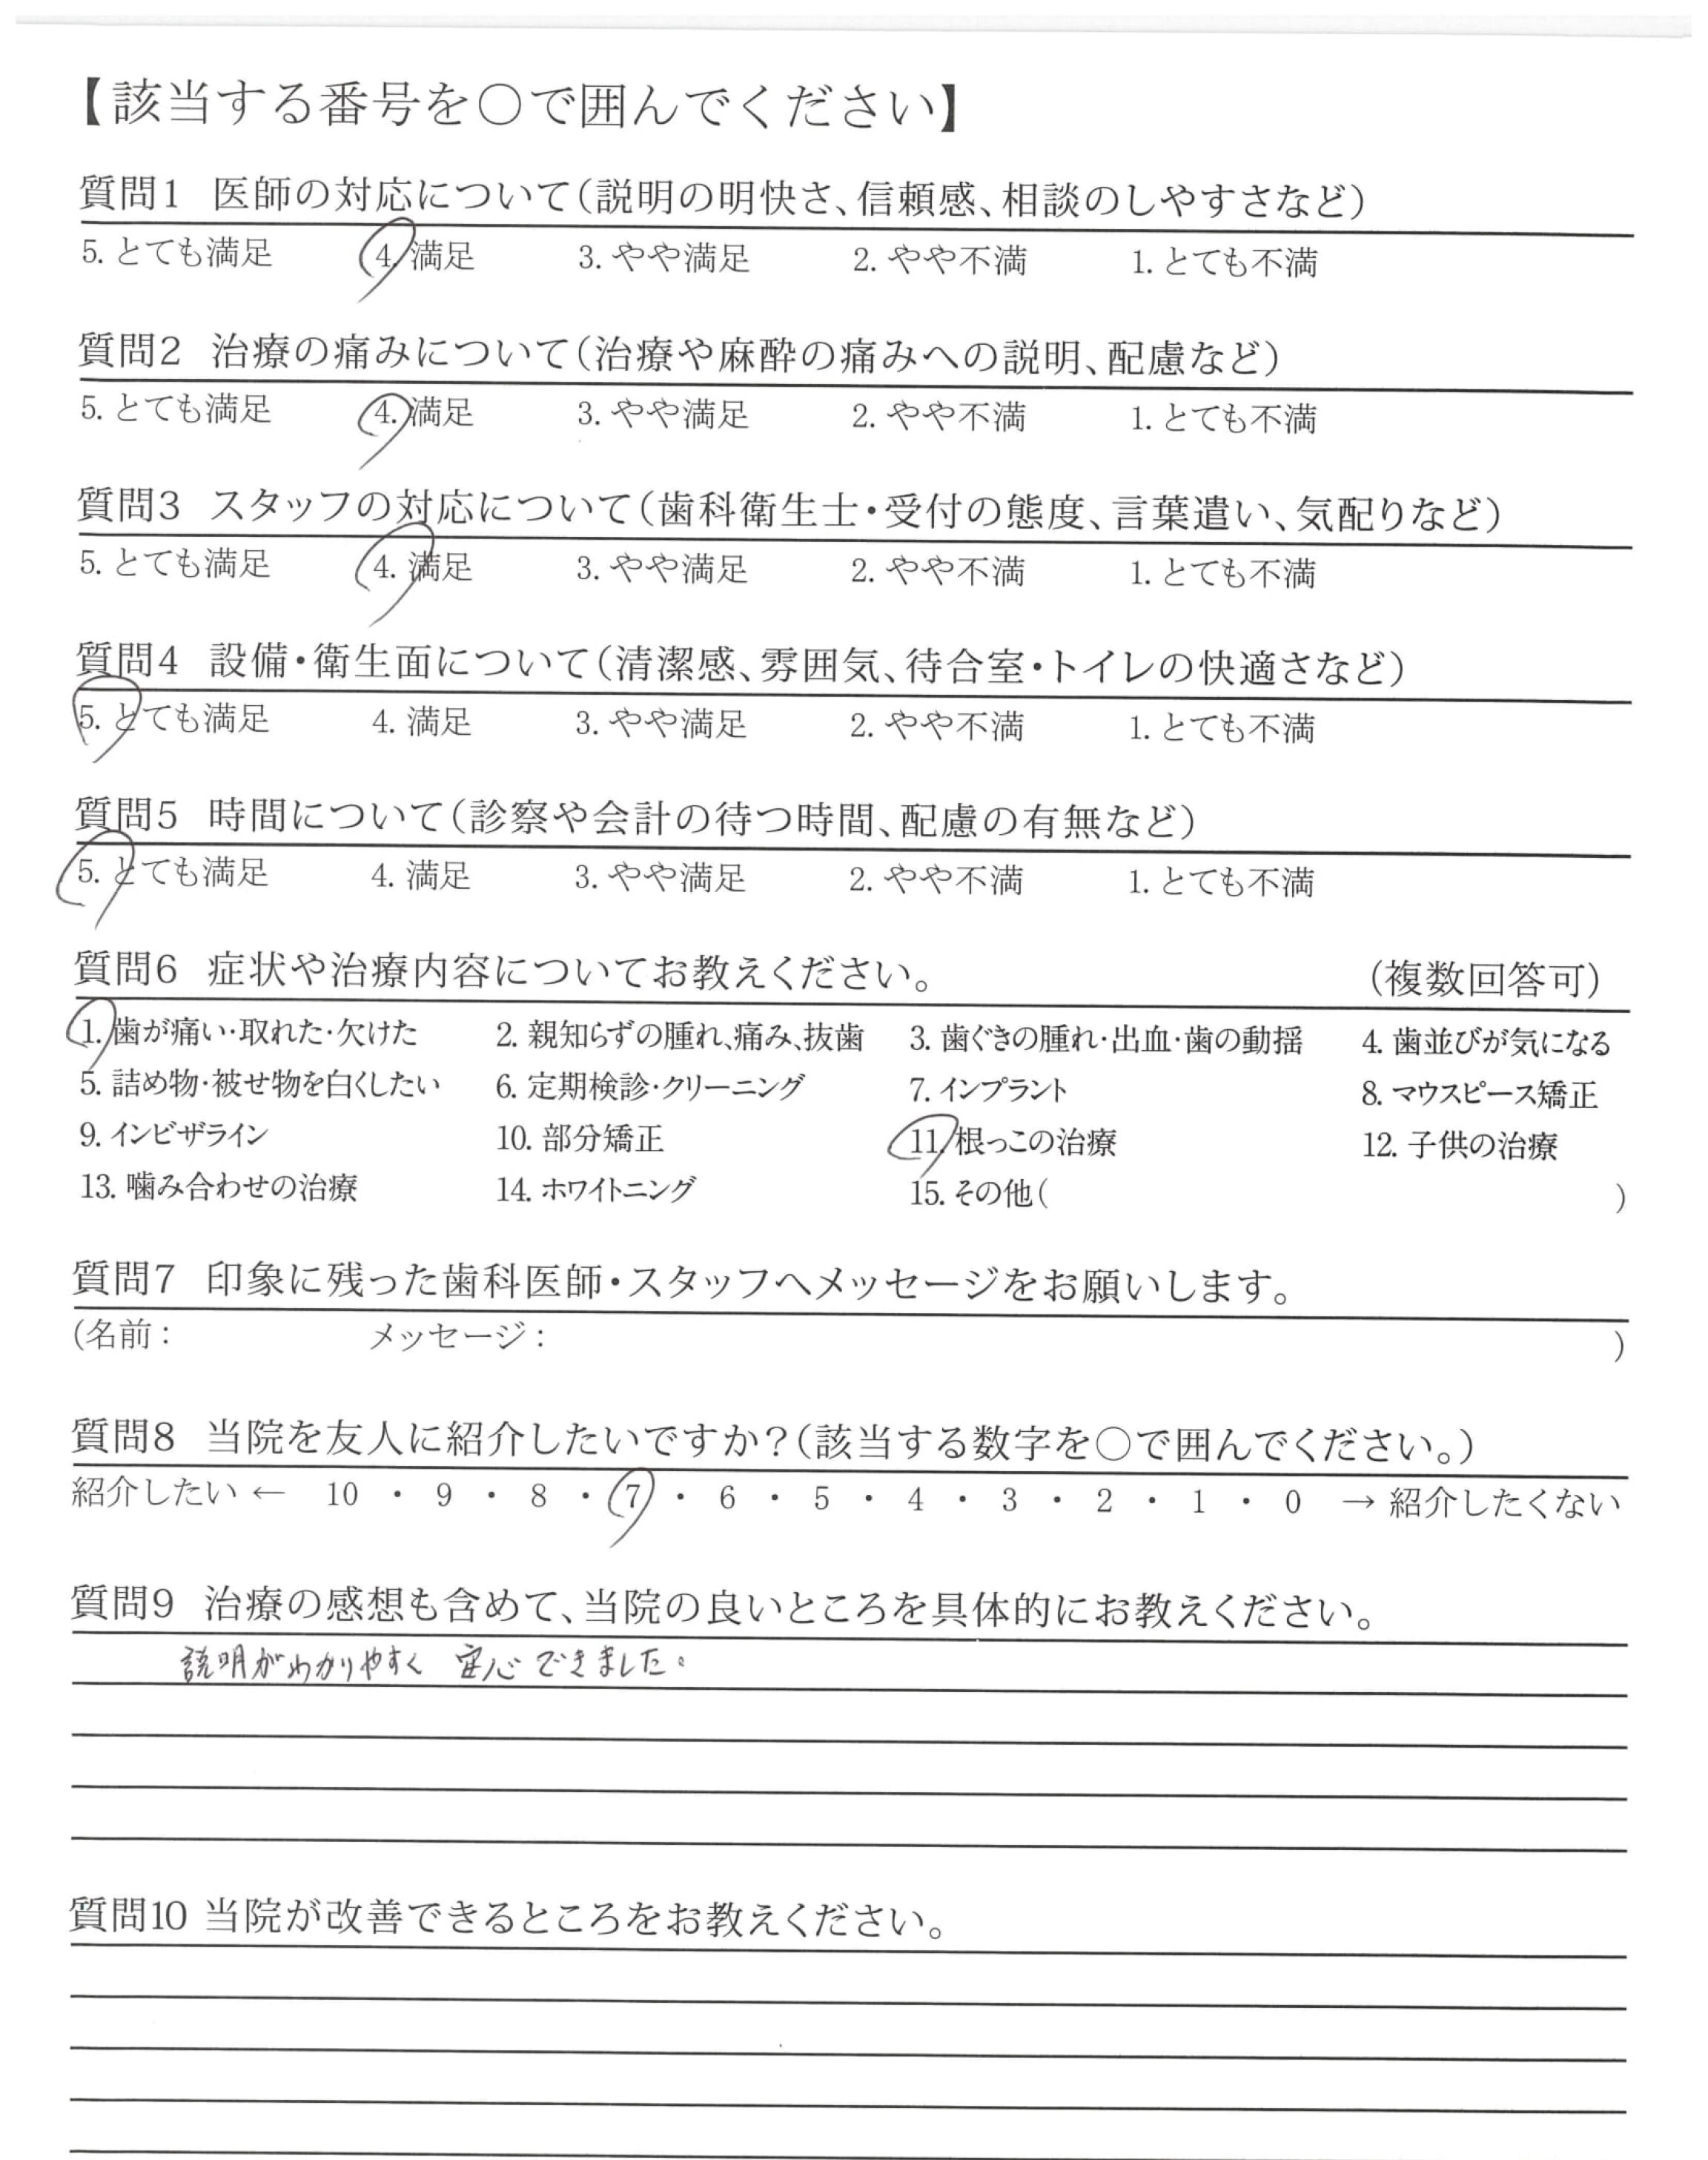 【該当する番号を○で囲んでください】
質問1 医師の対応について（説明の明快さ、信頼感、相談のしやすさなど）
5. とても満足 4. 満足 3. やや満足 2. やや不満 1. とても不満
質問2 治療の痛みについて（治療や麻酔の痛みへの説明、配慮など）
5. とても満足 4. 満足 3. やや満足 2. やや不満 1. とても不満
質問3 スタッフの対応について（歯科衛生士・受付の態度、言葉遣い、気配りなど）
5. とても満足 4. 満足 3. やや満足 2. やや不満 1. とても不満
質問4 設備・衛生面について（清潔感、雰囲気、待合室・トイレの快適さなど）
5. とても満足 4. 満足 3. やや満足 2. やや不満 1. とても不満
質問5 時間について（診察や会計の待つ時間、配慮の有無など）
5. とても満足 4. 満足 3. やや満足 2. やや不満 1. とても不満
質問6 症状や治療内容についてお教えください。 （複数回答可）
1. 歯が痛い・取れた・欠けた 2. 親知らずの腫れ、痛み、抜歯 3. 歯ぐきの腫れ・出血・歯の動揺 4. 歯並びが気になる
5. 詰め物・被せ物を白くしたい 6. 定期検診・クリーニング 7. インプラント 8. マウスピース矯正
9. インビザライン 10. 部分矯正 11. 根っこの治療 12. 子供の治療
13. 噛み合わせの治療 14. ホワイトニング 15. その他（ ）
質問7 印象に残った歯科医師・スタッフへメッセージをお願いします。
（名前： メッセージ： ）
質問8 当院を友人に紹介したいですか？（該当する数字を○で囲んでください。）
紹介したい ← 10 ・ 9 ・ 8 ・ 7 ・ 6 ・ 5 ・ 4 ・ 3 ・ 2 ・ 1 ・ 0 → 紹介したくない
質問9 治療の感想も含めて、当院の良いところを具体的にお教えください。
説明がわかりやすく 安心できました。
質問10 当院が改善できるところをお教えください。